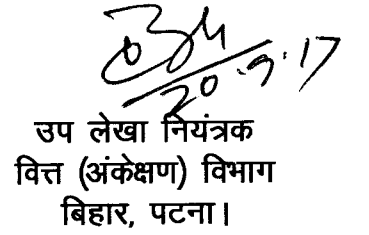 20.9.17
उप लेखा नियंत्रक
वित्त (अंकेक्षण) विभाग
बिहार, पटना।